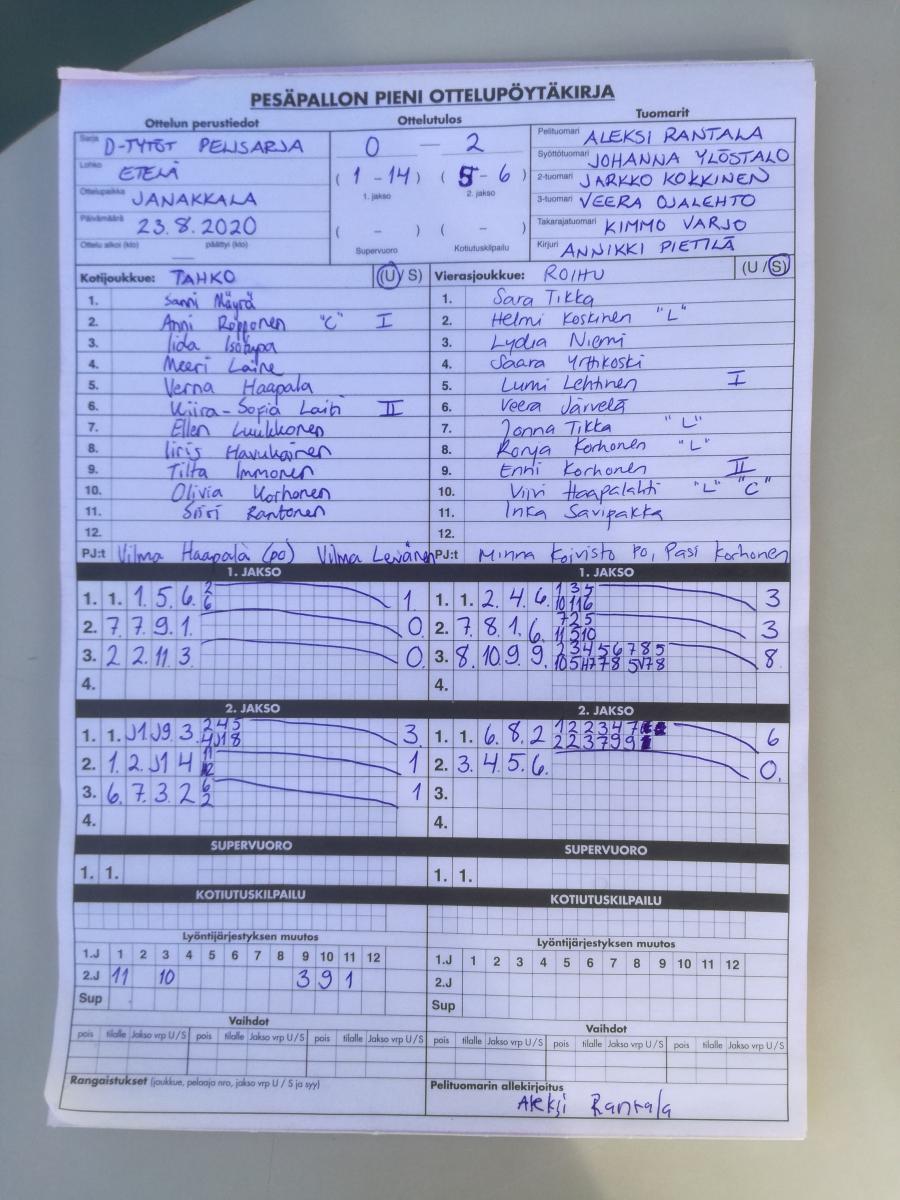 PESÄPALLON PIENI OTTELUPÖYTÄKIRJA
Ottelun perustiedot Ottelutulos Tuomarit
Sarja D-TYTÖT PELISARJA
Lohko ETELÄ
Ottelupaikka JANAKKALA
Päivämäärä 23.8.2020
Ottelu alkoi (klo) päättyi (klo)
0 — 2
( 1 - 14 ) ( 5 - 6 )
1. jakso 2. jakso
( - ) ( - )
Supervuoro Kotiutuskilpailu
Pelituomari ALEKSI RANTALA
Syöttötuomari JOHANNA YLÖSTALO
2-tuomari JARKKO KOKKINEN
3-tuomari VEERA OJALEHTO
Takarajatuomari KIMMO VARJO
Kirjuri ANNIKKI PIETILÄ
Kotijoukkue: TAHKO (U / S)
1. Sanni Mäyrä
2. Anni Ropponen "C" I
3. Iida Isotupa
4. Meeri Laine
5. Verna Haapala
6. Kiira-Sofia Laiti II
7. Ellen Luukkonen
8. Iiris Havukainen
9. Tilta Immonen
10. Olivia Korhonen
11. Siiri Rantonen
12.
PJ:t Vilma Haapala (po) Vilma Leivänen
Vierasjoukkue: ROIHU (U / S)
1. Sara Tikka
2. Helmi Koskinen "L"
3. Lydia Niemi
4. Saara Yrttikoski
5. Lumi Lehtinen I
6. Veera Järvelä
7. Jonna Tikka "L"
8. Ronja Korhonen "L"
9. Enni Korhonen II
10. Viivi Haapalahti "L" "C"
11. Inka Savipakka
12.
PJ:t Minna Koivisto PO, Pasi Korhonen
1. JAKSO
1. 1. 1. 5. 6. 2 6 1.
2. 7. 7. 9. 1. 0.
3. 2 2. 11. 3 0.
4.
2. JAKSO
1. 1. J1. J9. 3. 2 4 5 4 J1 8 3.
2. 1. 2. J1 4 11 1
3. 6. 7. 3. 2 6 2 1
4.
SUPERVUORO
1. 1.
KOTIUTUSKILPAILU
Lyöntijärjestyksen muutos
1.J 1 2 3 4 5 6 7 8 9 10 11 12
2.J 11 10 3 9 1
Sup
Vaihdot
pois tilalle Jakso vrp U/S pois tilalle Jakso vrp U/S pois tilalle Jakso vrp U/S
Rangaistukset (joukkue, pelaaja nro, jakso vrp U / S ja syy)
1. JAKSO
1. 1. 2. 4. 6. 1 3 5 10 11 6 3
2. 7. 8. 1. 6. 7 2 5 11 5 10 3
3. 8. 10. 9. 9. 2 3 4 5 6 7 8 5 8
4.
2. JAKSO
1. 1. 6. 8. 2 1 2 2 3 4 7 2 2 3 7 9 9 6
2. 3. 4. 5. 6. 0.
3.
4.
SUPERVUORO
1. 1.
KOTIUTUSKILPAILU
Lyöntijärjestyksen muutos
1.J 1 2 3 4 5 6 7 8 9 10 11 12
2.J
Sup
Vaihdot
pois tilalle Jakso vrp U/S pois tilalle Jakso vrp U/S pois tilalle Jakso vrp U/S
Pelituomarin allekirjoitus
Aleksi Rantala